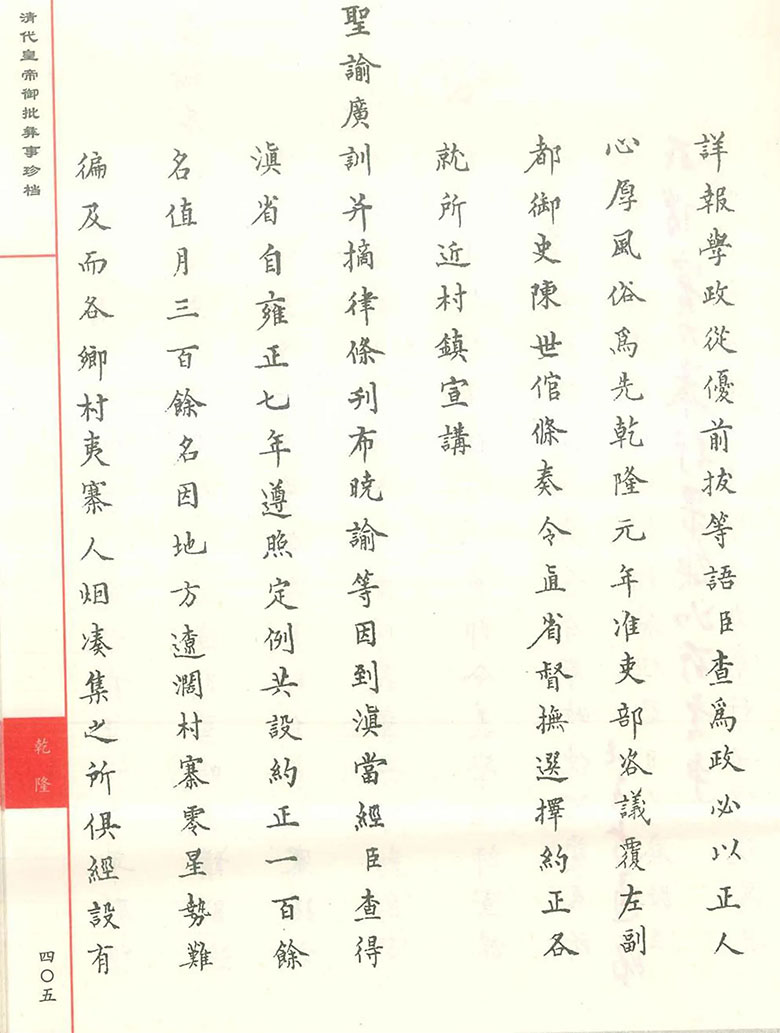 詳報學政從優前拔等語臣查爲政必以正人
心厚風俗爲先乾隆元年准吏部咨議覆左副
都御史陳世倌條奏令直省督撫選擇約正各
就所近村鎮宣講
聖諭廣訓并摘律條刊布曉諭等因到滇當經臣查得
滇省自雍正七年遵照定例共設約正一百餘
名值月三百餘名因地方遼濶村寨零星勢難
徧及而各鄉村夷寨人烟凑集之所俱經設有
清代皇帝御批彝事珍档
乾隆
四〇五